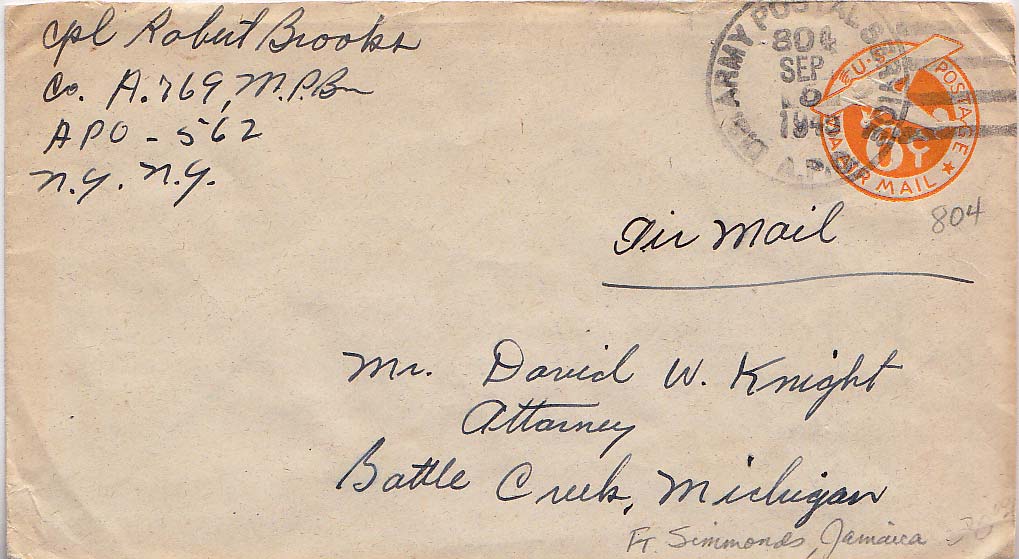 Cpl Robert Brooks
Co. A. 769, M.P. Bn
APO - 562
N.Y. N.Y.
U.S. ARMY POSTAL SERVICE
804
SEP
1943
A.P.O.
U.S. POSTAGE
6¢
AIR MAIL
804
Air Mail
Mr. David W. Knight
Attorney
Battle Creek, Michigan
Ft. Simmonds, Jamaica